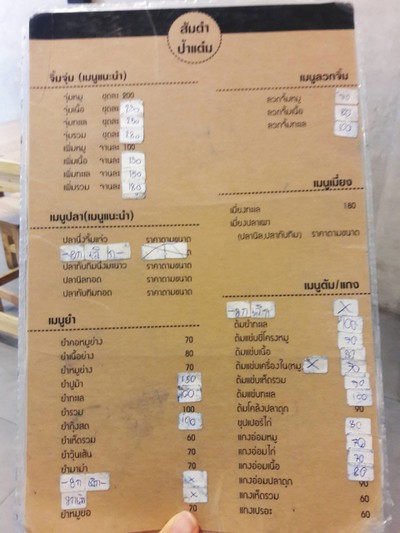 ส้มตำ
ป้าแต๋ม
จิ้มจุ่ม (เมนูแนะนำ)
จุ่มหมู ชุดละ 200
จุ่มเนื้อ ชุดละ 250
จุ่มทะเล ชุดละ 250
จุ่มรวม ชุดละ 280
เพิ่มหมู จานละ 100
เพิ่มเนื้อ จานละ 150
เพิ่มทะเล จานละ 150
เพิ่มรวม จานละ 180
เมนูปลา(เมนูแนะนำ)
ปลานึ่งจิ้มแจ่ว ราคาตามขนาด
ปลาทับทิมนึ่งมะนาว ราคาตามขนาด
ปลานิลทอด ราคาตามขนาด
ปลาทับทิมทอด ราคาตามขนาด
เมนูยำ
ยำคอหมูย่าง 70
ยำเนื้อย่าง 80
ยำหมูย่าง 70
ยำปูม้า 150
ยำทะเล 100
ยำรวม 100
ยำกุ้งสด 100
ยำเห็ดรวม 60
ยำวุ้นเส้น 70
ยำมาม่า 70
ยำหมูยอ 70
เมนูลวกจิ้ม
ลวกจิ้มหมู 70
ลวกจิ้มเนื้อ 80
ลวกจิ้มทะเล 100
เมนูเมี่ยง
เมี่ยงทะเล 180
เมี่ยงปลาเผา
(ปลานิล,ปลาทับทิม) ราคาตามขนาด
เมนูต้ม/แกง
ต้มยำทะเล 100
ต้มแซ่บซี่โครงหมู 70
ต้มแซ่บเนื้อ 80
ต้มแซ่บเครื่องใน(หมู 70
ต้มแซ่บเห็ดรวม 70
ต้มแซ่บทะเล 100
ต้มโคล้งปลาดุก 90
ซุปเปอร์ไก่ 80
แกงอ่อมหมู 70
แกงอ่อมไก่ 70
แกงอ่อมเนื้อ 80
แกงอ่อมปลาดุก 90
แกงเห็ดรวม 60
แกงเปรอะ 60